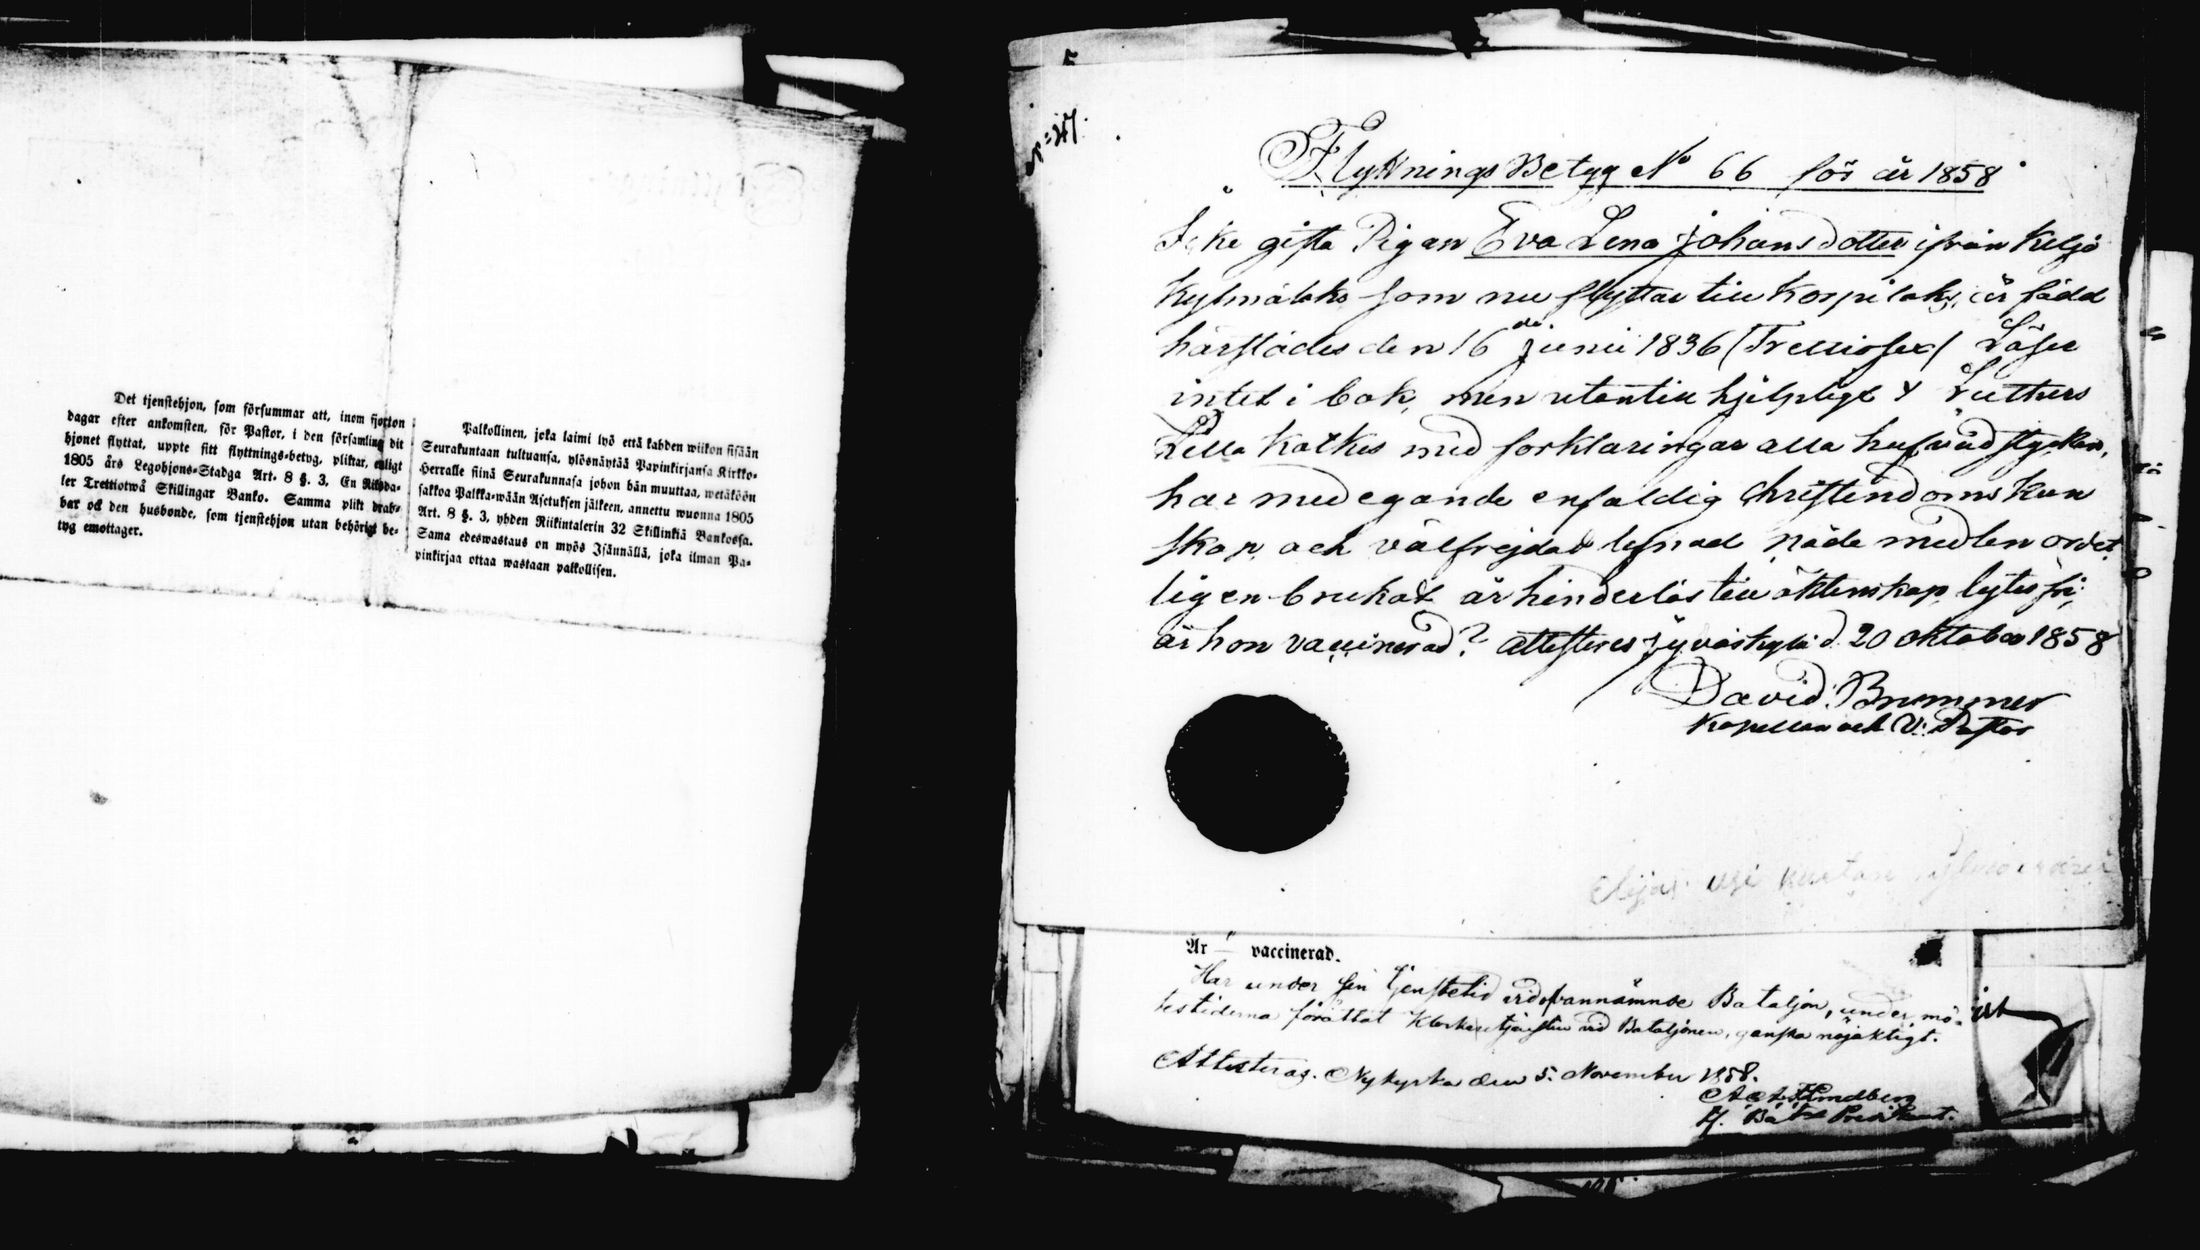 Det tjenstehjon, som försummar att, inom fjorton
dagar efter ankomsten, för Pastor, i den församling dit
hjonet flyttat, uppte sitt flyttnings-betyg, pliktar, enligt
1805 års Legohjons-Stadga Art. 8 §. 3, En Riksda-
ler Trettiotwå Skillingar Banko. Samma plikt drab-
bar ock den husbonde, som tjenstehjon utan behörigt be-
tyg emottager.
Palkollinen, joka laimi lyö että kahden wiikon sisään
Seurakuntaan tultuansa, ylösnäytää Papinkirjansa Kirkko-
Herralle siinä Seurakunnasa johon hän muuttaa, wetäköön
sakkoa Palkka-wään Asetuksen jälkeen, annettu wuonna 1805
Art. 8 §. 3, yhden Riikintalerin 32 Skillinkiä Bankossa.
Sama edeswastaus on myös Isännällä, joka ilman Pa-
pinkirjaa ottaa wastaan palkollisen.
5
No 47.
Flyttnings Betyg No 66 för år 1858
Icke gifta Pigan Eva Lena Johansdotter ifrån Keljo
som nu flyttar till Korpilaks, är född
härstädes den 16de Junii 1836 (Trettiosex) Läser
intet i bok, men utantill hjelpligt Luthers
Lilla Katkes med forklaringar alla hufvudstycken,
har med egande enfaldig Christendoms kun
skap, och välfrejdad lefnad nåde medlen ordet
ligen brukat är hinderlös till äktenskap, lytesfri,
är hon vaccinerad? attesteres Jyväskylä d. 20 oktober 1858
David Brummer
Kapellan och V. Pastor
Är vaccinerad.
Har under sin tjenstetid vid ofvannämnde Bataljon, under mö-
testiderna förättat Klockaretjensten vid Bataljonen, ganska nöjaktigt.
Attesteras. Nykyrka den 5. November 1858.